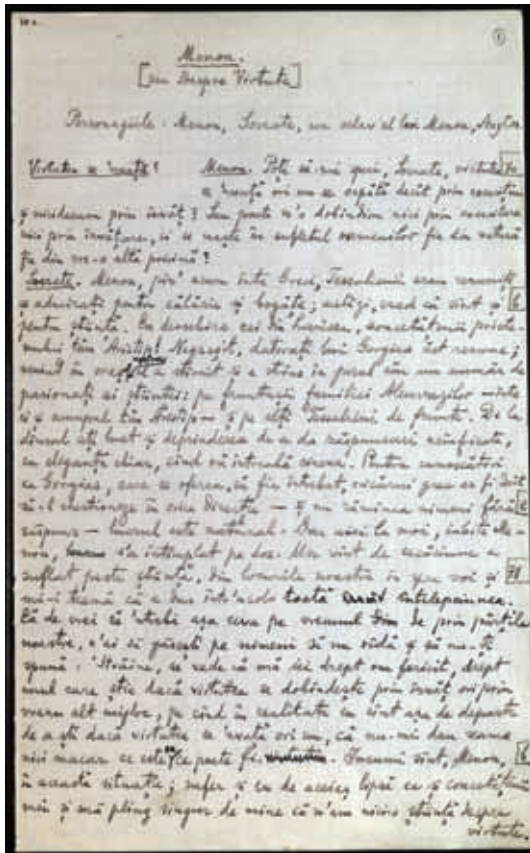 Menon.
[sau Despre Virtute]
Personagiile: Menon, Socrate, un sclav al lui Menon, Anytos
Virtutea se învață? Menon. Poți să-mi spui, Socrate, virtutea
se învață ori nu se capătă decît prin exercițiu
și nicidecum prin învăț? Sau poate n'o dobîndim nici prin exercitare
nici prin învățare, ci se naște în sufletul oamenilor fie din natură
fie din vre-o altă pricină?
Socrate. Menon, pîn' acum între Greci, Tessalienii erau renumiți
și admirați pentru călărie și bogăție; astăzi, cred că sînt și
pentru știință. În deosebire cei din Larissa, concetățenii priete-
nului tău Aristip! Negreșit, datorați lui Gorgias acest renume;
venit în orașul a stîrnit și a atras în jurul său un număr de
pasionați ai științei: pe fruntașii familiei Aleuazilor — între
ei și scumpul tău Aristip — și pe alți Tessalieni de frunte. De la
dînsul ați luat și deprinderea de a da răspunsuri
cu eleganță chiar, cînd vă întreabă cineva. Pentru cunoscători
ca Gorgias, care se oferea, să fie întrebat, oricărui grec ar fi
să-l chestioneze în orice direcție — și nu rămînea nimeni fără
răspuns — lucrul este natural. Dar aici la noi, iubite Me-
non, s'a întîmplat pe dos. Un vînt de secăciune a
suflat peste știință, din locurile noastre în spre voi și
mi-i teamă că a dus într'acolo toată înțelepciunea.
Că de vrei să 'ntrebi așa ceva pe vreunul din de prin părțile
noastre, n'ai să găsești pe nimeni să nu rîdă și să nu-ți
spună: "Străine, se vede că mă iei drept om fericit, drept
unul care știe dacă virtutea se dobîndește prin învăț ori prin
vreun alt mijloc, pe cînd în realitate eu sînt așa de departe
de a ști dacă virtutea se 'nvață ori nu, că nu-mi dau seama
nici macar ce este ce poate fi. sînt, Menon,
în această situație; sufer și eu de aceeaș lipsă ca și concetățenii
mei și mă plîng singur de mine că n'am nicio știință despre
virtute.